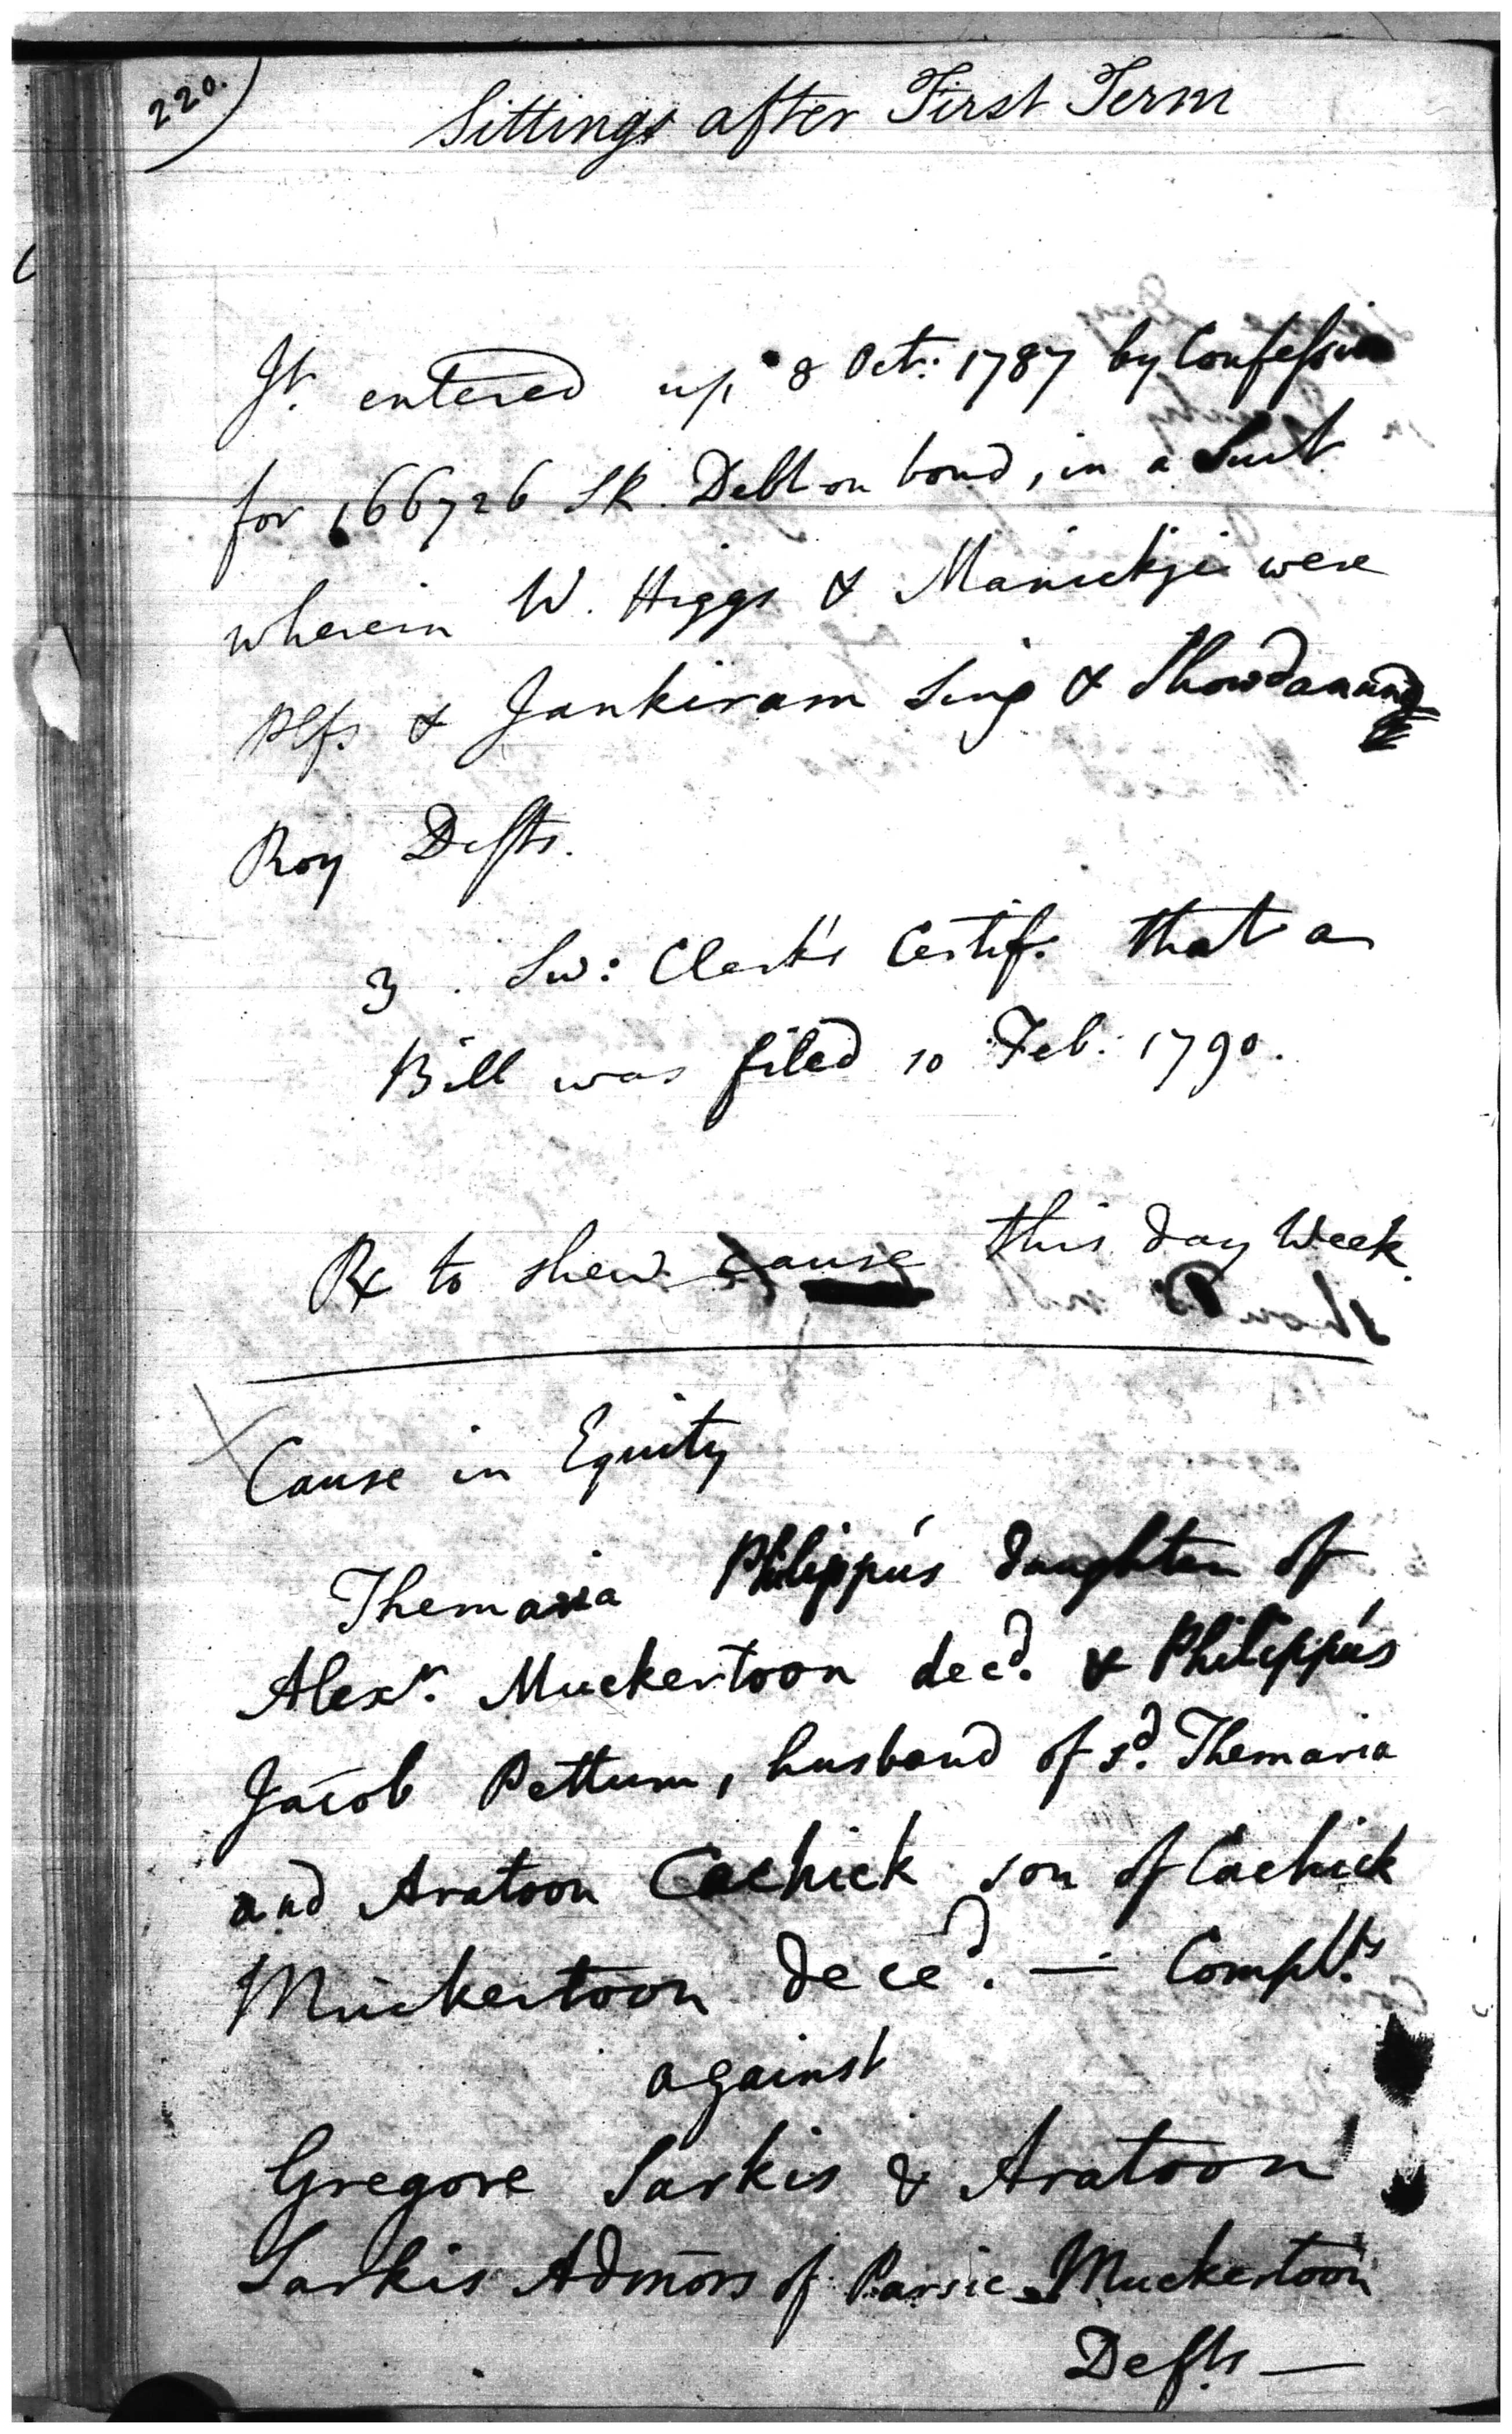 220.
Sittings after First Term
Jt. entered up 8 Oct: 1787 by Confession
for 166726 SR. Debt on bond, in a Suit
wherein W. Higgs & Manickjee were
Plfs & Jankiram Sing &
Roy Defts.
3. Sw: Clerk's Certif. that a
Bill was filed 10 Feb: 1790.
Rx to shew cause this day Week.
Cause in Equity
Themaria Philippus daughter of
Alexr. Muckertoon decd. & Philippus
Jacob Pettum, husband of sd. Themaria
and Aratoon Cachick son of Cachick
Muckertoon deced. — Complts.
against
Gregore Sarkis & Aratoon
Sarkis Admors of Parsic Muckertoon
Defts —